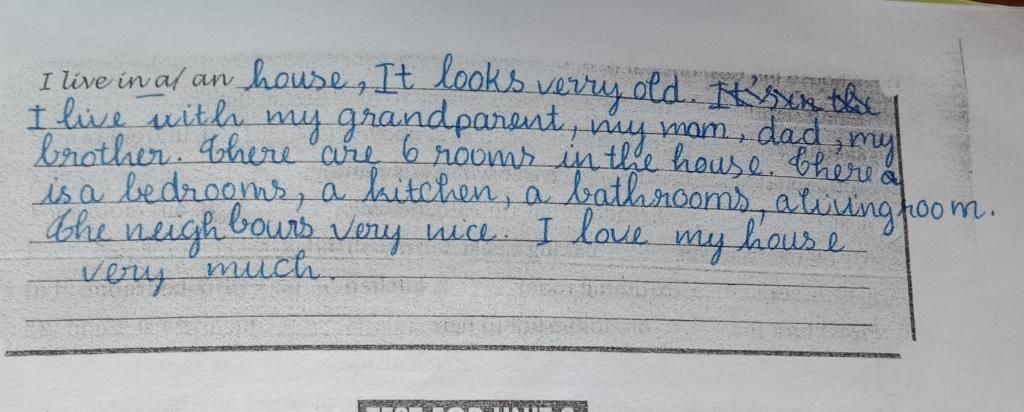 I live in a/ an house, It looks verry old. It's in the
I live with my grandparent, my mom, dad, my
brother. There are 6 rooms in the house. there a
is a bedrooms, a kitchen, a bathrooms, a living room.
The neighbours very nice. I love my house
very much.